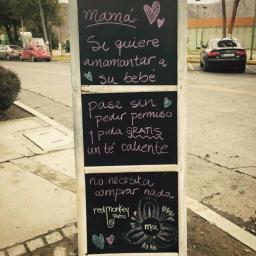 Mamá
Si quiere
amamantar a
su bebe
pase sin
pedir permiso
y pida GRATIS
un té caliente
no necesita
comprar nada
redmonkey